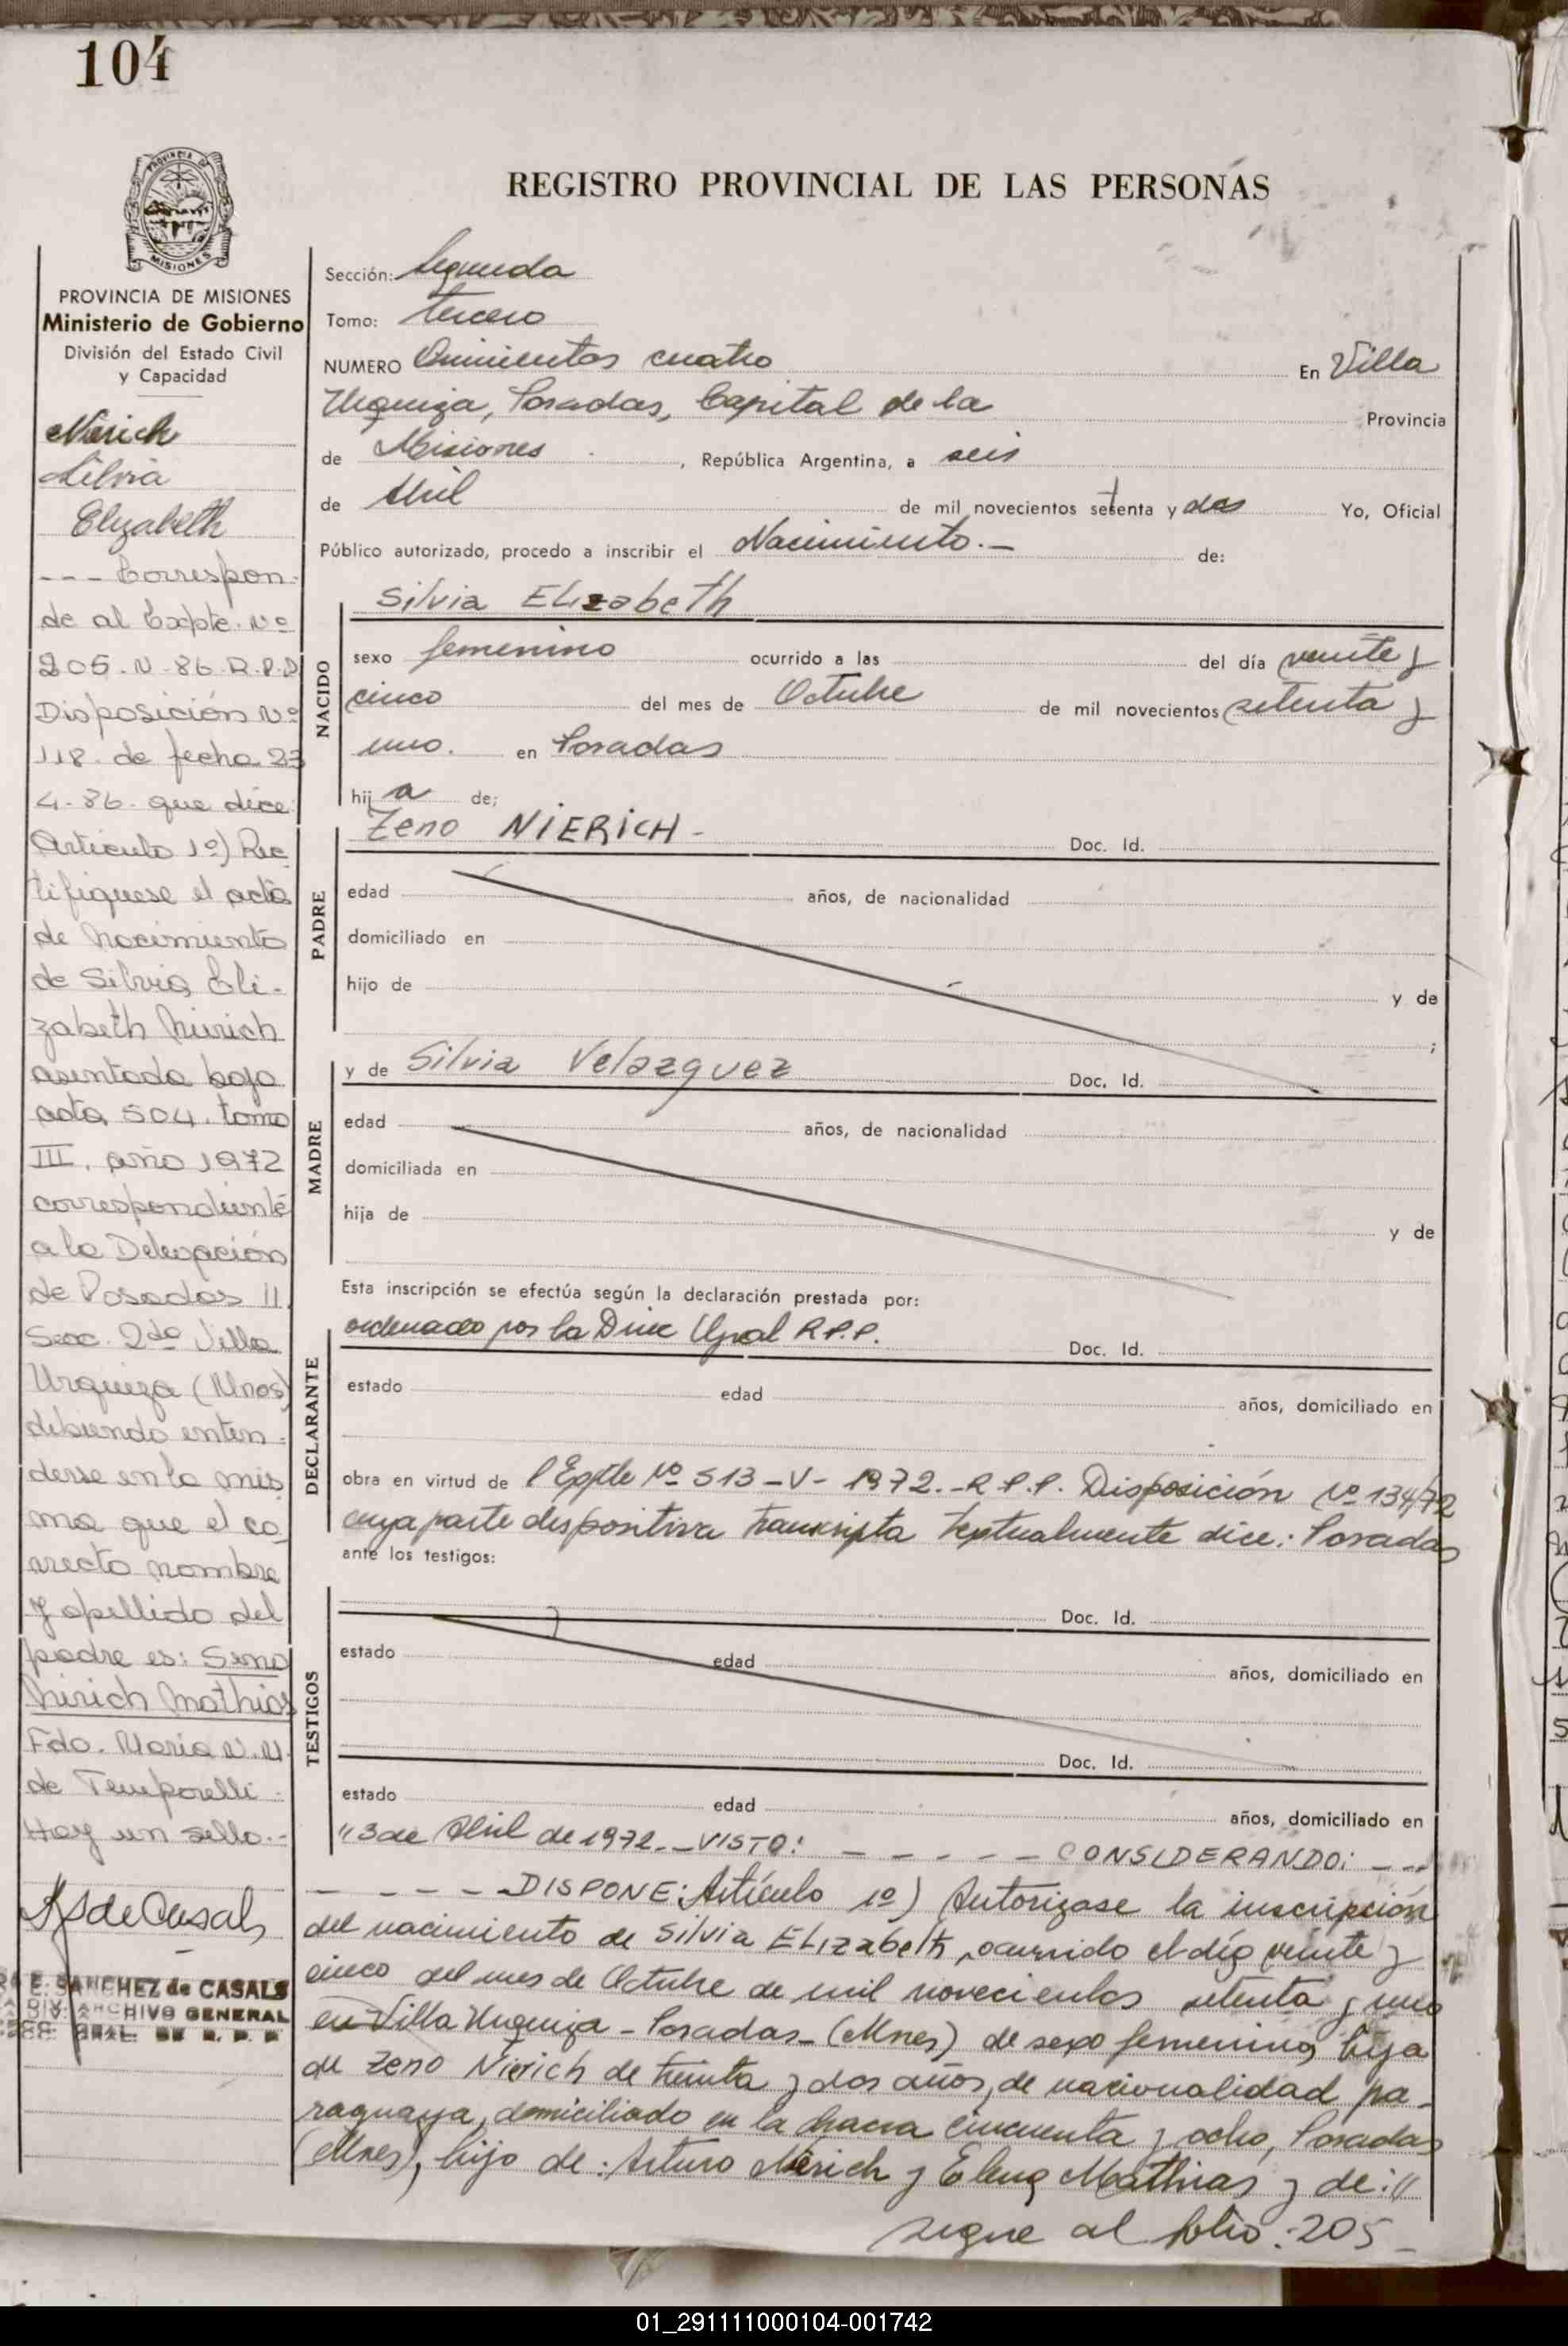 104
PROVINCIA DE
MISIONES
REGISTRO PROVINCIAL DE LAS PERSONAS
PROVINCIA DE MISIONES
Ministerio de Gobierno
División del Estado Civil
y Capacidad
Nierich
Silvia
Elizabeth
--- Correspon-
de al Expte. Nº
205-N-86-R.P.P
Disposición Nº
118. de fecha 23
4-86- que dice:
Artículo 1º) Rec
tifiquese el acta
de Nacimiento
de Silvia Eli-
zabeth Nierich
asentada bajo
acta 504. tomo
III. año 1972
correspondiente
a la Delegación
de Posadas II
Secc. 2da Villa
Urquiza (Mnes)
debiendo enten-
derse en la mis
ma que el co
rrecto nombre
y apellido del
padre es: Seno
Nirich Mathias
Fdo. Maria N. M.
de Temporelli -
Hay un sello.-
E. SANCHEZ de CASALS
DIV. ARCHIVO GENERAL
GRAL DE R. P. P
Sección: Segunda
Tomo: tercero
NUMERO Quinientos cuatro En Villa
Urquiza, Posadas, Capital de la Provincia
de Misiones , República Argentina, a seis
de Abril de mil novecientos setenta y dos Yo, Oficial
Público autorizado, procedo a inscribir el Nacimiento.- de:
NACIDO
Silvia ELizabeth
sexo femenino ocurrido a las del día veinte y
cinco del mes de Octubre de mil novecientos setenta y
uno. en Posadas
hija de;
PADRE
Zeno NiERiCH - Doc. Id.
edad años, de nacionalidad
domiciliado en
hijo de y de
;
MADRE
y de Silvia Velazquez Doc. Id.
edad años, de nacionalidad
domiciliada en
hija de y de
Esta inscripción se efectúa según la declaración prestada por:
DECLARANTE
ordenado por la Direc Gral R.P.P. Doc. Id.
estado edad años, domiciliado en
obra en virtud de l'Expte Nº 513-V-1972.-R.P.P. Disposición Nº 134/72
cuya parte dispositiva transcripta textualmente dice: Posadas
ante los testigos:
TESTIGOS
Doc. Id.
estado edad años, domiciliado en
Doc. Id.
estado edad años, domiciliado en
"3 de Abril de 1972.-VISTO: - - - - - CONSIDERANDO: - -
- - - - DISPONE: Artículo 1º) Autorizase la inscripción
del nacimiento de Silvia ELizabeth, ocurrido el día veinte y
cinco del mes de Octubre de mil novecientos setenta y uno
en Villa Urquiza - Posadas - (Mnes) de sexo femenino, hija
de Zeno Nierich de treinta y dos años, de nacionalidad pa-
raguaya, domiciliado en la chacra cincuenta y ocho, Posadas
(Mnes), hijo de: Arturo Nierich y Elena Mathias y de: "
sigue al folio: 205 -
01_291111000104-001742